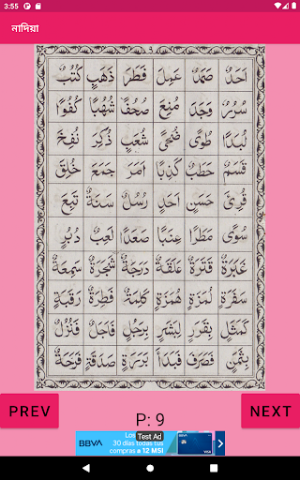 3:55
নাদিয়া
اَحَدٌ صَمَدٌ عَمِلَ فَطَرَ ذَهَبٍ كُتُبٌ
سُرُرٌ وَجَدَ مُنِعَ صُحُفًا شُهُبًا كُفُوًا
لُبَدًا طُوًى ضُحًى شُعَبٍ ذُكِرَ نُفِخَ
قَسَمٌ حَطَبٌ كَذِبًا اَمَرَ جَمَعَ خُلِقَ
قُرِئَ حَسَنٍ اَحَدٍ رُسُلٌ سَنَةٌ تَبِعَ
سُوًى مَطَرًا عِنَبًا صَعَدًا لَعِبٌ دُبُرٍ
غَبَرَةٌ قَتَرَةٌ عَلَقَةٌ دَرَجَةٌ شَجَرَةٌ سَمِعَهٗ
سَفَرَةٍ لُمَزَةٍ هُمَزَةٍ كَلِمَةٌ قِطَرَةٌ رَقَبَةٍ
كَمَثَلِ بِقَدَرٍ لِبَشَرٍ بِرَجُلٍ
بِثَمَنٍ فَصَرَفَ فَبَدَاَ بَرَرَةٍ صَدَقَةٍ
PREV P: 9 NEXT
BBVA
Test Ad
30 días todas tus
compras a 12 MSI